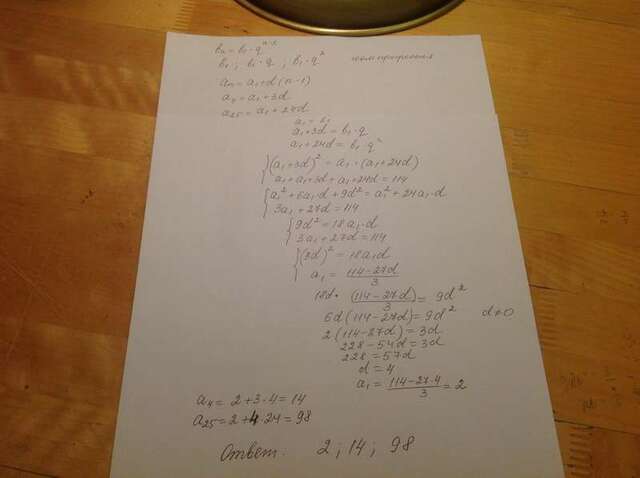 bₙ = b₁·qⁿ⁻¹
b₁ ; b₁·q ; b₁·q² геом прогрессия
aₙ = a₁+d(n-1)
a₄ = a₁+3d
a₂₅ = a₁+24d
a₁ = b₁
a₁+3d = b₁·q
a₁+24d = b₁·q²
{(a₁+3d)² = a₁·(a₁+24d)
a₁+a₁+3d+a₁+24d = 114
{a₁²+6a₁·d+9d² = a₁²+24a₁·d
3a₁+27d = 114
{9d² = 18a₁·d
3a₁+27d = 114
{(3d)² = 18a₁d
a₁ = (114-27d)/3
18d· (114-27d)/3 = 9d²
6d(114-27d) = 9d² d≠0
2(114-27d) = 3d
228-54d = 3d
228 = 57d
d = 4
a₁ = (114-27·4)/3 = 2
a₄ = 2+3·4 = 14
a₂₅ = 2+4·24 = 98
Ответ. 2 ; 14 ; 98